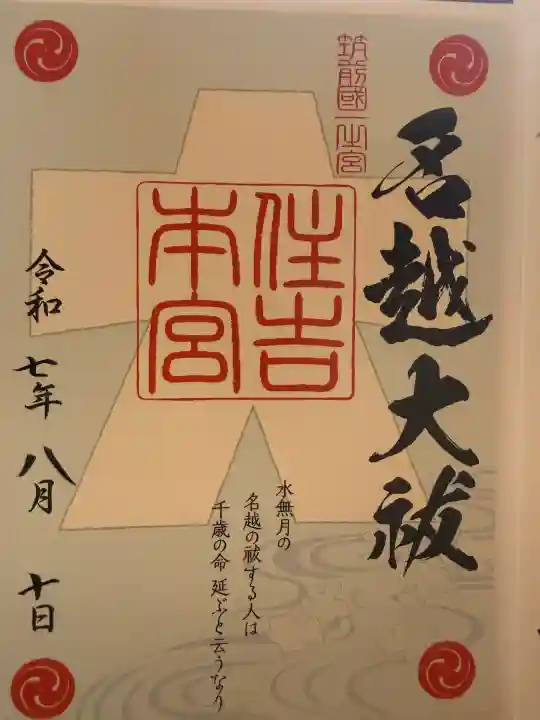 筑前國一之宮
名越大祓
住吉
本宮
水無月の
名越の祓する人は
千歳の命 延ぶと云うなり
令和 七年 八月 十日